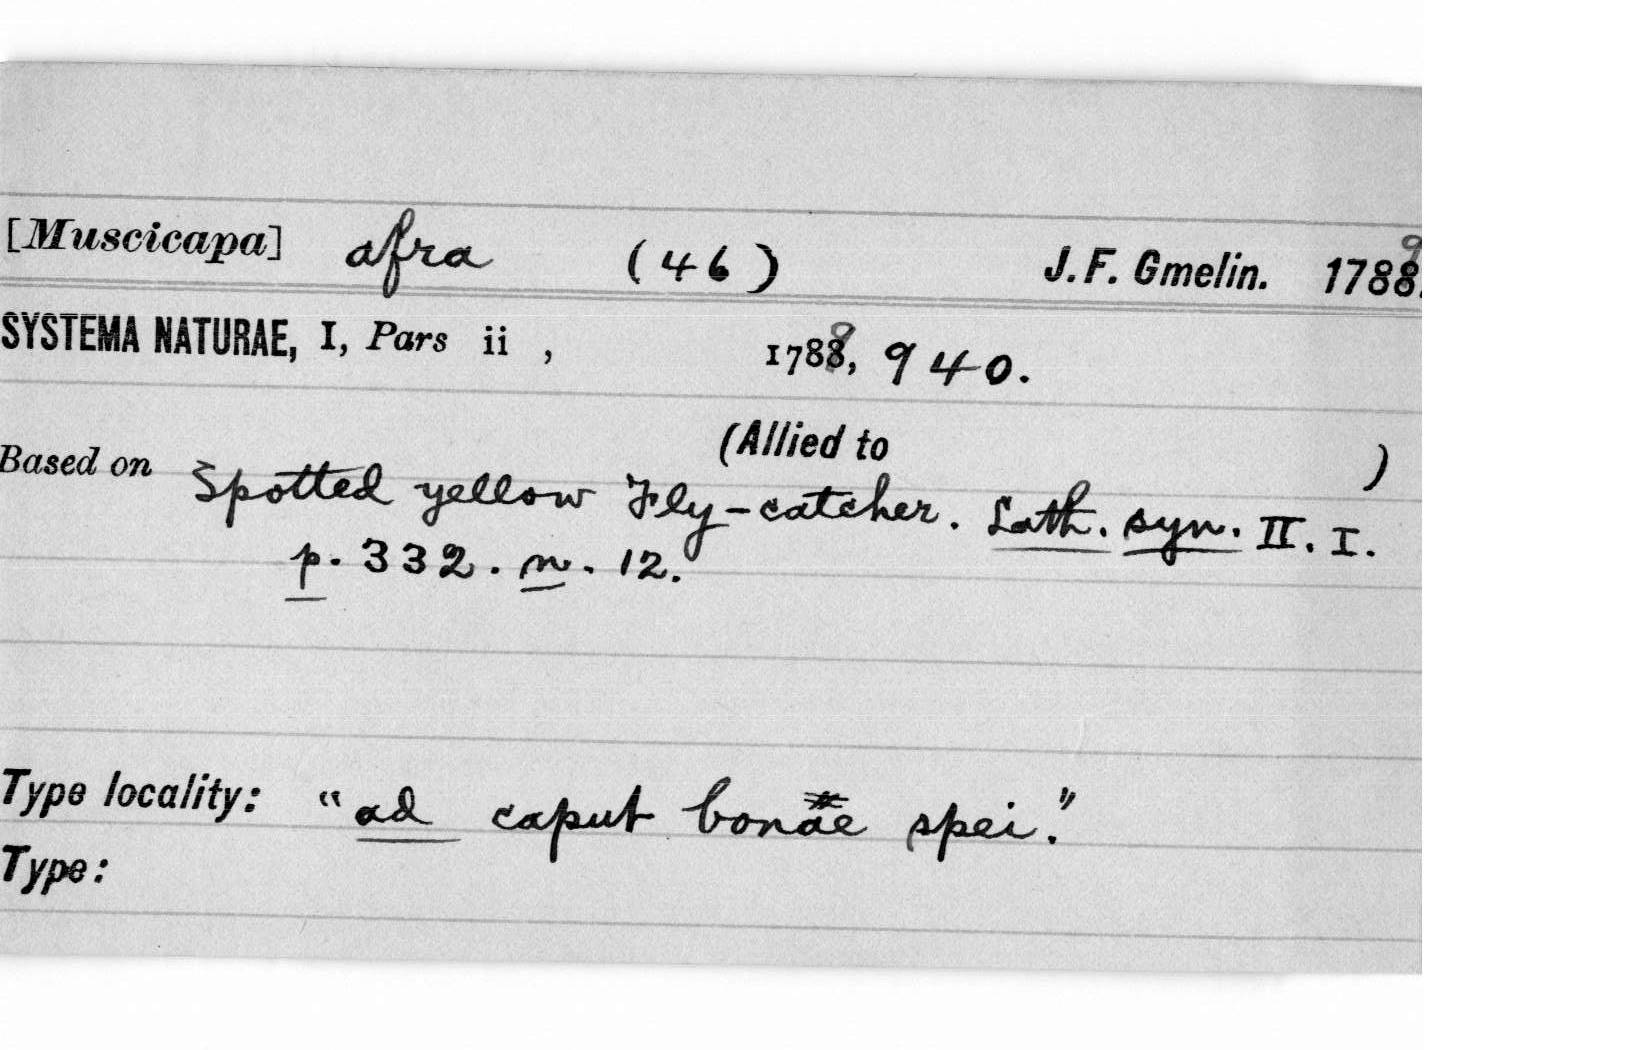 [Muscicapa] afra (46) J. F. Gmelin. 1789.
SYSTEMA NATURAE, I, Pars ii , 1789, 940.
(Allied to )
Based on Spotted yellow Fly-catcher. Lath. syn. II. I.
p. 332. n. 12.
Type locality: "ad caput bonae spei."
Type: